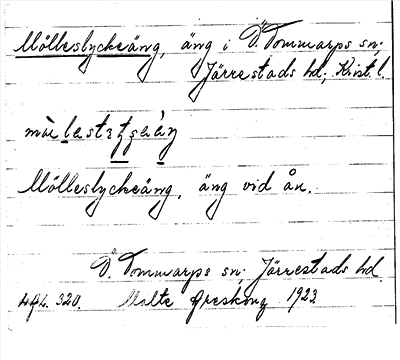 Mölleslyckeäng, äng i Ö. Tommarps sn;
Järrestads hd; Krist. l.
Mölleslyckeäng, äng vid ån.
Ö. Tommarps sn; Järrestads hd.
320. Malte 1923